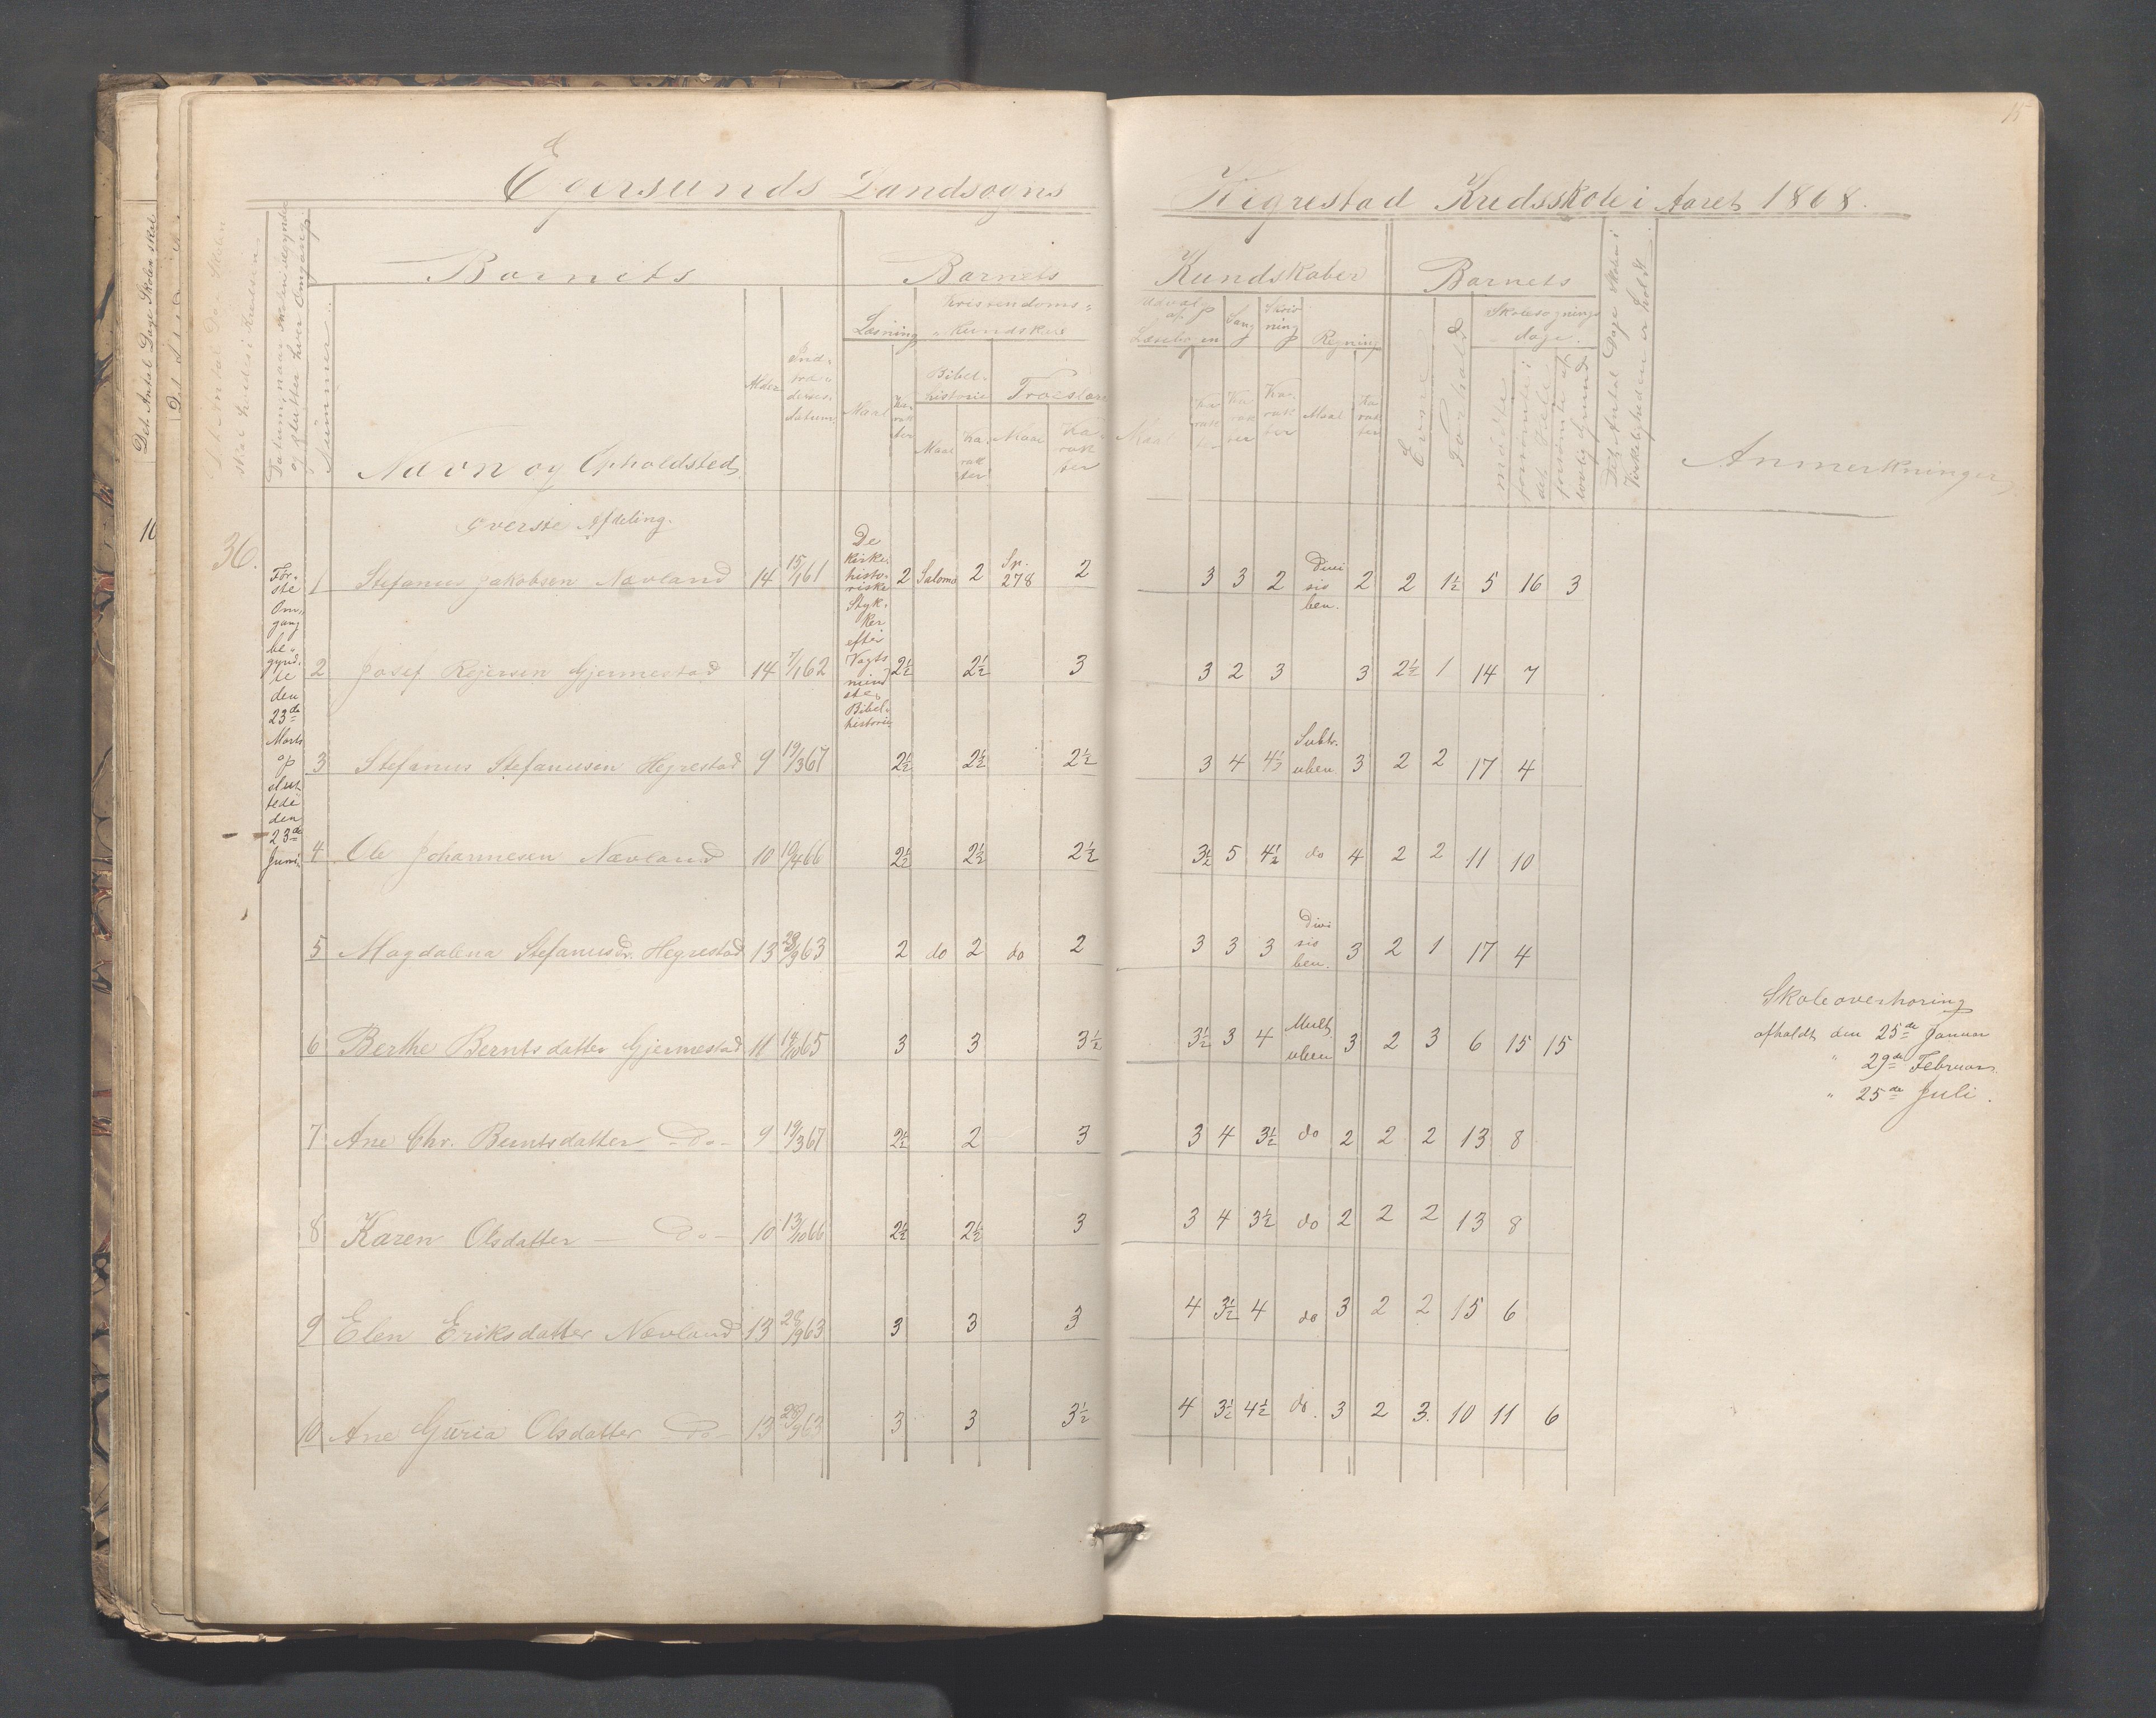 15
Egersunds Landsogns
Hegrestad Kredsskole i Aaret 1868.
Det Antal Dage Skolen skal
Det Antal Dage Skolen
skal holdes i Kredsen
Datum, naar Skolen begynder
og slutter hver Omgang
Nummer
Barnets
Navn og Opholdsted
Alder
Ind-
træ-
delses-
datum
Barnets
Læsning
Maal
Ka-
rak
ter
Kristendoms-
Kundskab
Bibel-
historie
Maal
Ka-
rak
ter
Troeslære
Maal
Ka-
rak
ter
Kundskaber
Udvalg
af
Læsebogen
Maal
Ka-
rak
ter
Sang
Ka-
rak
ter
Skriv
ning
Ka-
rak
ter
Regning
Maal
Ka-
rak
ter
Barnets
Evne
Forhold
Skolesøgnings
dage.
mødte
forsømte i
det Hele
forsømte af
lovlig Grund
Det Antal Dage Skolen i
Virkeligheden er holdt
Anmerkninger
10
36.
Øverste Afdeling.
Før-
ste
Om-
gang
be-
gynd-
te
den
23de
Marts
og
slut-
tede
den
23de
Juni
De
kirke-
histo-
riske
Styk-
ker
efter
Vogts
mind
ste
Bibel-
historie
1 Stefanus Jakobsen Nævland 14 15/1 61 2 Salomo 2 Sp. 278 2 3 3 2 Divi sio ben. 2 2 1½ 5 16 3
2 Josef Rejersen Gjermestad 14 7/1 62 2½ 2½ 3 3 2 3 3 2½ 1 14 7
3 Stefanus Stefanusen Hegrestad 9 19/3 67 2½ 2½ 2½ 3 4 4½ Subtr. uben. 3 2 2 17 4
4 Ole Johannesen Nævland 10 19/4 66 2½ 2½ 2½ 3½ 5 4½ do 4 2 2 11 10
5 Magdalena Stefanusdr. Hegrestad 13 28/9 63 2 do 2 do 2 3 3 3 Divi sio ben. 3 2 1 17 4
6 Berthe Berntsdatter Gjermestad 11 18/10 65 3 3 3½ 3½ 3 4 Mult. uben 3 2 3 6 15 15
7 Ane Chr. Berntsdatter -do- 9 19/3 67 2½ 2 3 3 4 3½ do 2 2 2 13 8
8 Karen Olsdatter - Do - 10 13/10 66 2½ 2½ 3 3 4 3½ do 2 2 2 13 8
9 Elen Eriksdatter Nævland 13 28/9 63 3 3 3 4 3½ 4 do 3 2 2 15 6
10 Ane Guria Olsdatter - Do - 13 28/9 63 3 3 3½ 4 3½ 4½ do. 3 2 3. 10 11 6
Skoleoverhøring
afholdt den 25de Januar
" 29de Februar.
" 25de Juli.